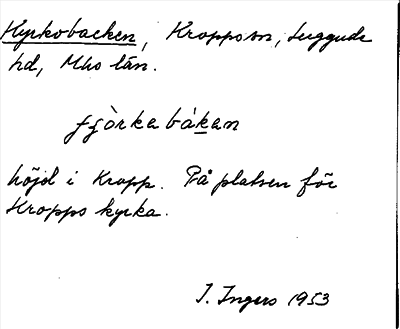 Kyrkobacken, Kropps sn, Luggude
hd, Mhs län.
höjd i Kropp. På platsen för
Kropps kyrka.
I. Ingers 1953